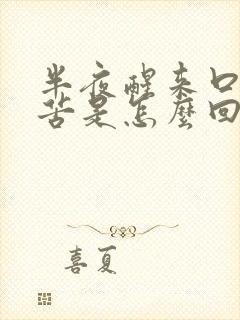 半夜醒来口
苦是怎麼回
喜夏